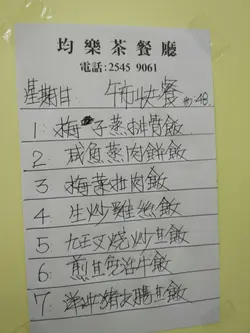 均樂茶餐廳
電話:2545 9061
星期日 特快餐 $48
1: 梅子蒸排骨飯
2. 咸魚蒸肉餅飯
3 梅菜扣肉飯
4. 生炒雞丝飯
5. 叉燒炒旦飯
6: 煎旦免治牛飯
7: 猪大腸旦飯